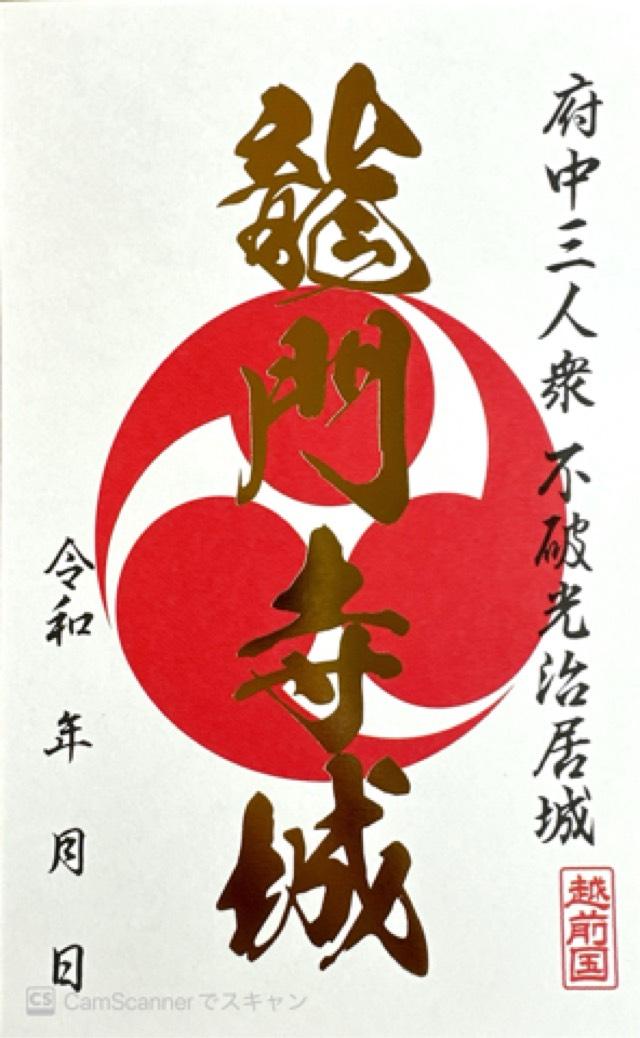 府中三人衆 不破光治居城
越前国
龍門寺城
令和 年 月 日
CS CamScannerでスキャン